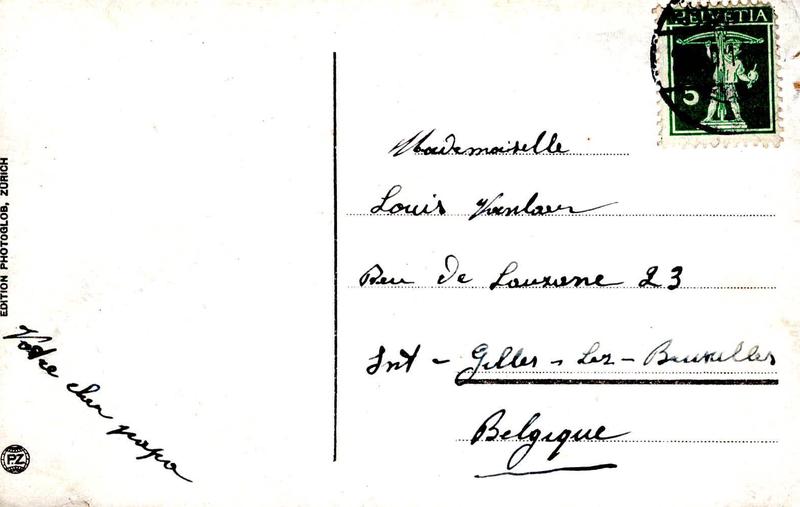 HELVETIA
5
Mademaiselle
Louis Vanlaer
Reu de Lauzane 23
Int - Gilles - Lez - Bruxelles
Belgique
Votre cher papa
EDITION PHOTOGLOB, ZÜRICH
PZ